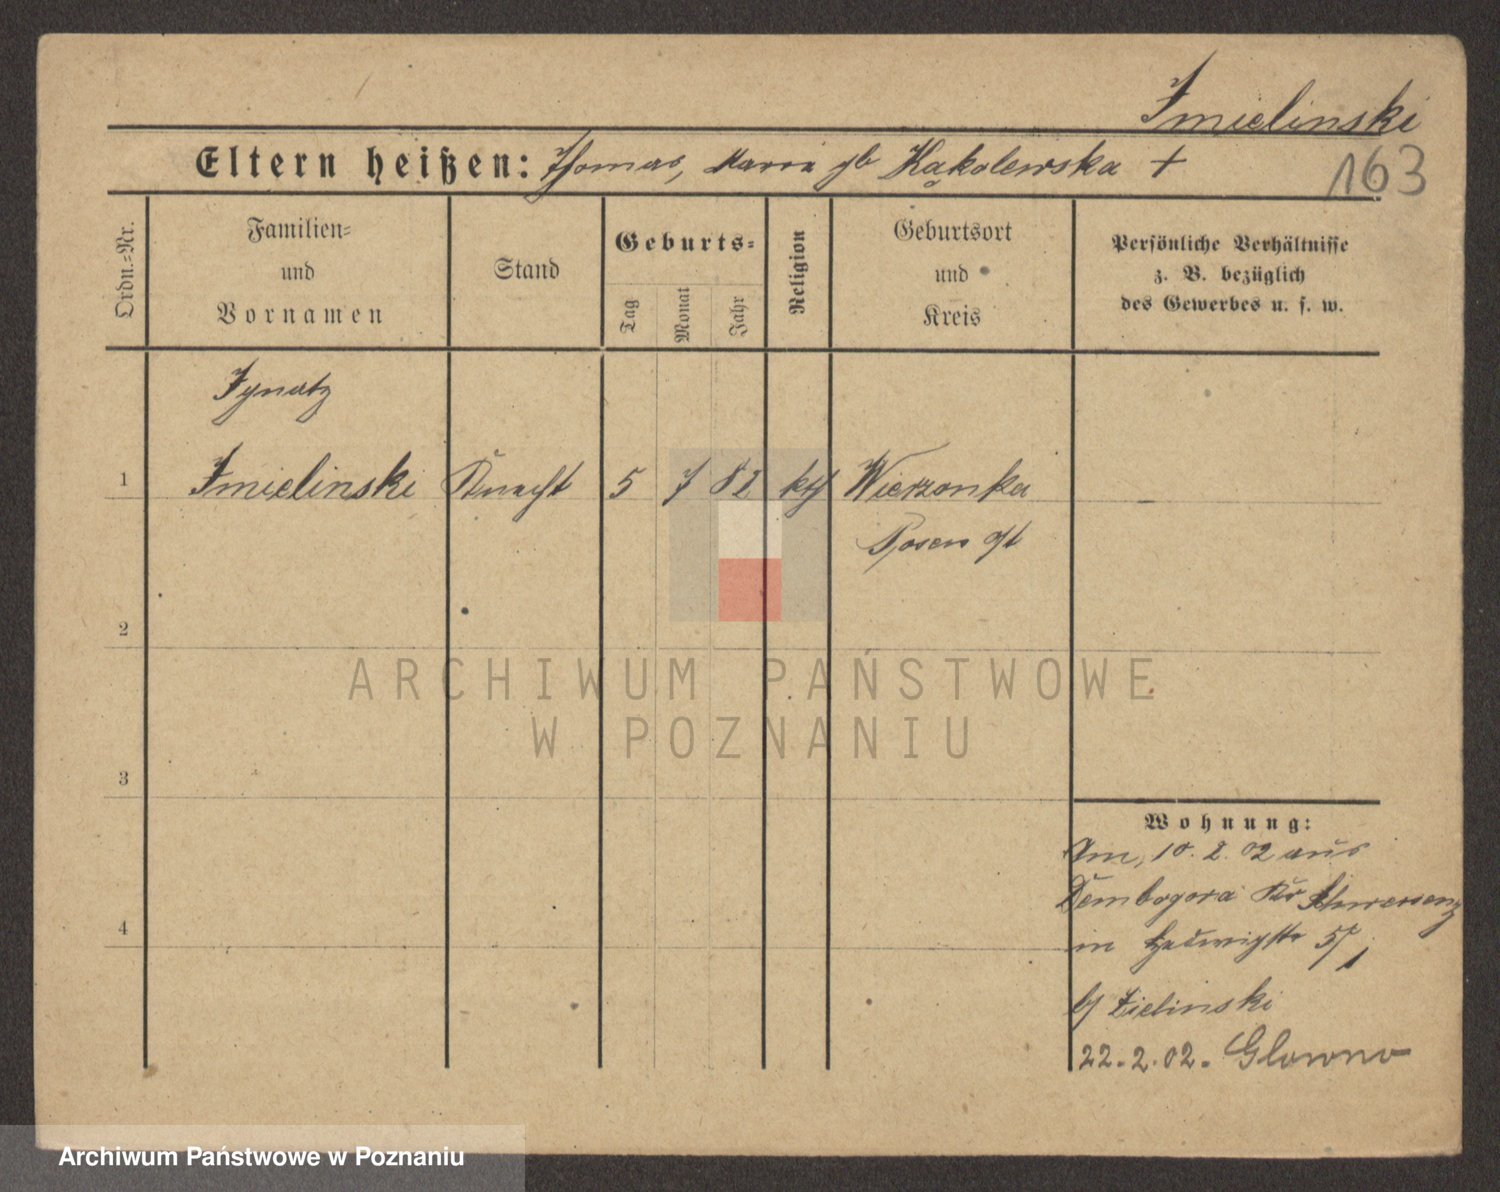 Imielinski
Eltern heißen: Thomas, Maria gb Kąkolewska +
163
Ordn.-Nr.
Familien-
und
Vornamen
Stand
Geburts-
Tag
Monat
Jahr
Religion
Geburtsort
und
Kreis
Persönliche Verhältnisse
z. B. bezüglich
des Gewerbes u. s. w.
Ignatz
1 Imielinski Knecht 5 7 82 kth Wierzonka
Posen Ost
2
3
4
Wohnung:
Am, 10. 2. 02 aus
Dembogora Kr Schwersenz
in Hedwigstr
b/ Zielinski
22.2.02. Glowno
ARCHIWUM PAŃSTWOWE
W POZNANIU
Archiwum Państwowe w Poznaniu